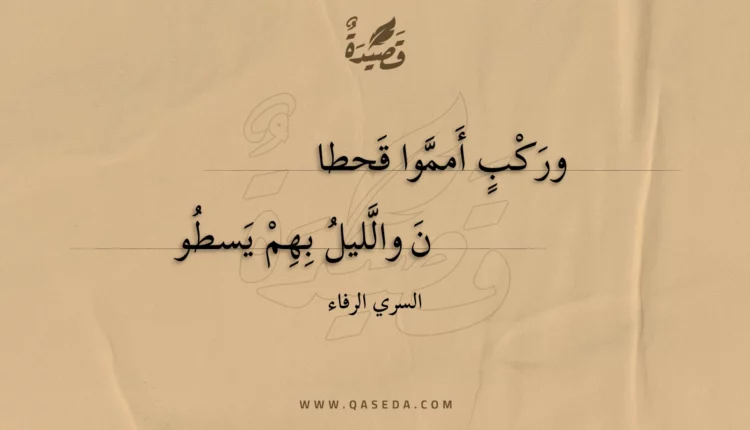 قَصِيْدَةٌ
ورَكْبٍ أَممَّوا قَحطا
نَ والَّليلُ بِهِمْ يَسطُو
السري الرفاء
WWW.QASEDA.COM